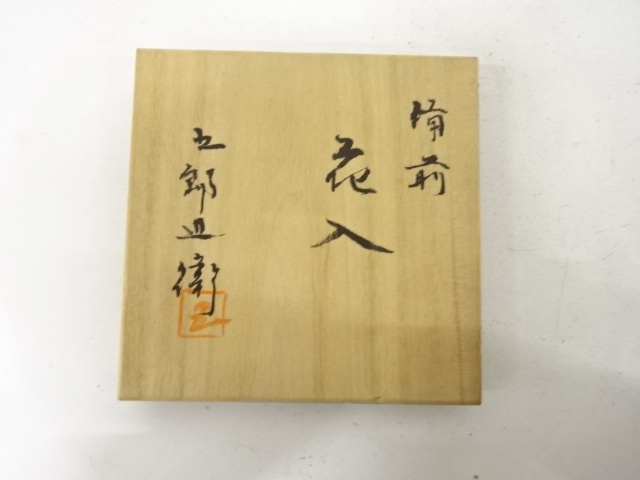 備前
花入
五郎辺衛